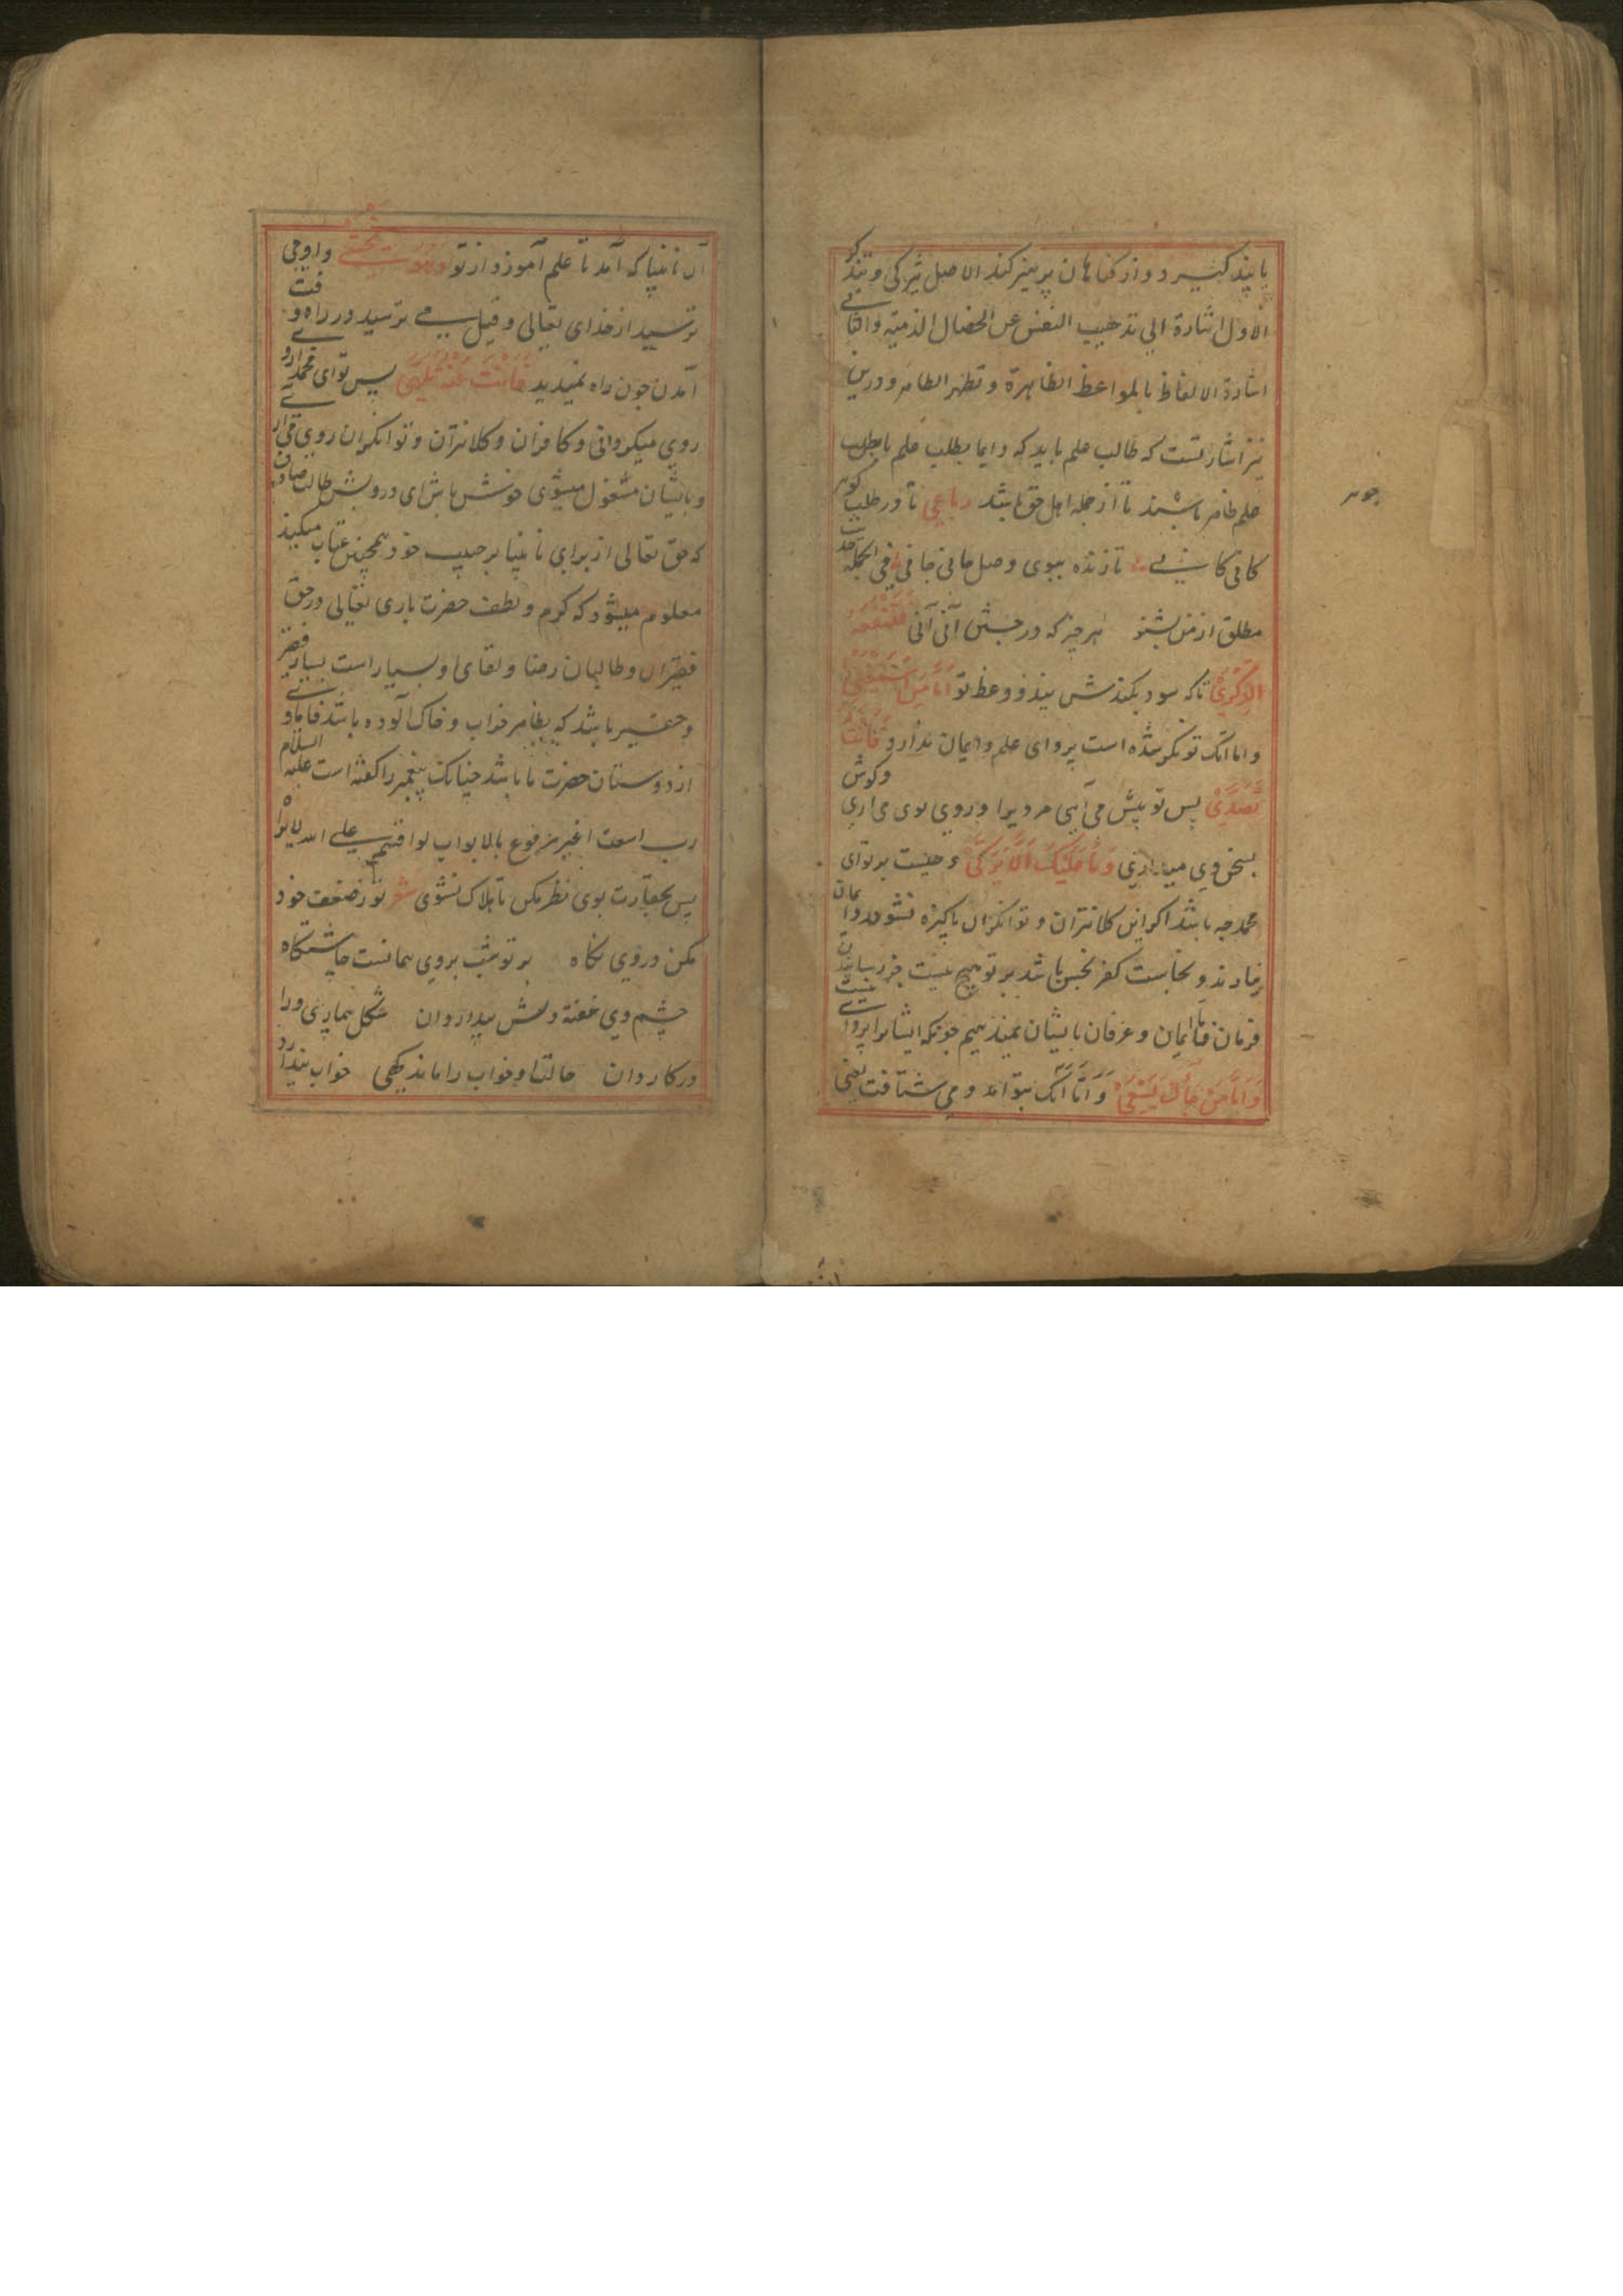 یا پند کیرد و از کناهان پرهیز کند الاصل یتزکی و یتذکر
الاول اشارة الی تذهیب النفس عن الخصال الذمیة والثانی
اشارة الالفاظ بالمواعظ الظاهرة و تطهر الظاهر و درین
نیز اشارتست که طالب علم باید که دایما بطلب علم باطن
علم ظاهر باشند تا از جمله اهل حق باشد رباعی تا در طلب کوهر
کانی کانی تا زنده ببوی وصل جانی جانی فی الجمله حدیث
مطلق از من بشنو هر چیز که در جستن آنی آنی فتنفعه
الذکری تا که سود بکندش پند و وعظ تو اما من استغنی
و اما آنک توانکر شده است پروای علم و ایمان ندارد فانت
تصدی پس تو پیش می آیی مرو یرا و روی بوی می اری و کوش
بسخن وی می اندازی وما علیک الا یزکی و چیست بر تو ای
محمد چه باشد اکر این کلانتران و توانکران پاکیزه نشوند و ایمان
نیارند و نجاست کفر نجس باشد بر تو هیچ نیست جز رسانیدن
فرمان ما ایمان و عرفان بایشان نمیدهیم چونکه ایشانرا پروای نیست
واما من جاءک یسعی و اما آنک بتو امد و می شتافت یعنی
جوهر
آن نابینا که آمد تا علم آموزد از تو وهو یخشی و او می
ترسید از خدای تعالی و قیل می ترسید در راه و فت
آمدن چون راه نمیدید فانت عنه تلهی پس تو ای محمد از وی
روی میکردانی و کافران و کلانتران و توانکران روی می آری
و بایشان مشغول میشوی خوش باش ای درویش طالب صادق
که حق تعالی از برای نابینا بر حبیب خود همچنین عتاب میکند
معلوم میشود که کرم و لطف حضرت باری تعالی در حق
فقیران و طالبان رضا و لقای او بسیار است بسیار فقیر
و حقیر باشد که بظاهر خراب و خاک آلوده باشد فاما وی
از دوستان حضرت ما باشد چنانک پیغمبر را کفته است علیه السلام
رب اشعث اغبر مرفوع بالابواب لو اقسم علی الله لابره
پس بحقارت بوی نظر مکن تا هلاک نشوی شعر تو ز ضعف خود
مکن در روی نکاه بر تو شب بر وی همانست چاشتکاه
چشم وی خفته دلش بیدار دان شکل بیکاری ورا
در کار دان حالت او خواب را ماند کهی خواب پندارد